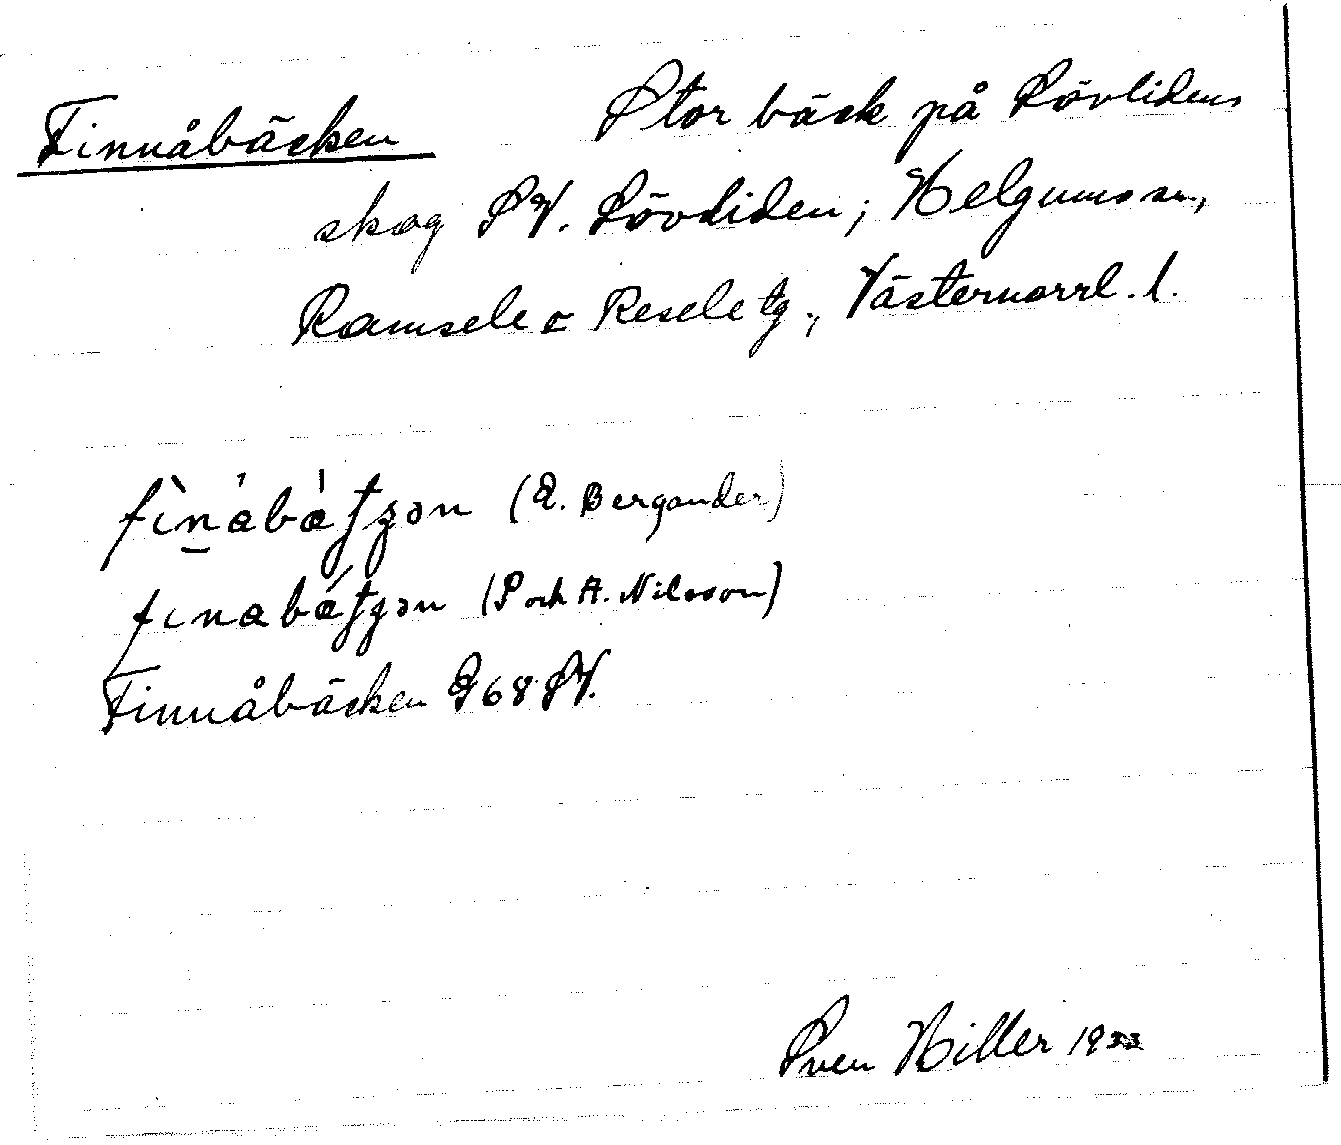 Finnåbäcken Stor bäck på Lövlidens
skog SV. Lövliden; Helgums sn,
Ramsele o Resele tg., Västernorrl. l.
(E. Bergander)
(S och A. Nilsson)
Finnåbäcken G68 SV.
Sven Hiller 1933